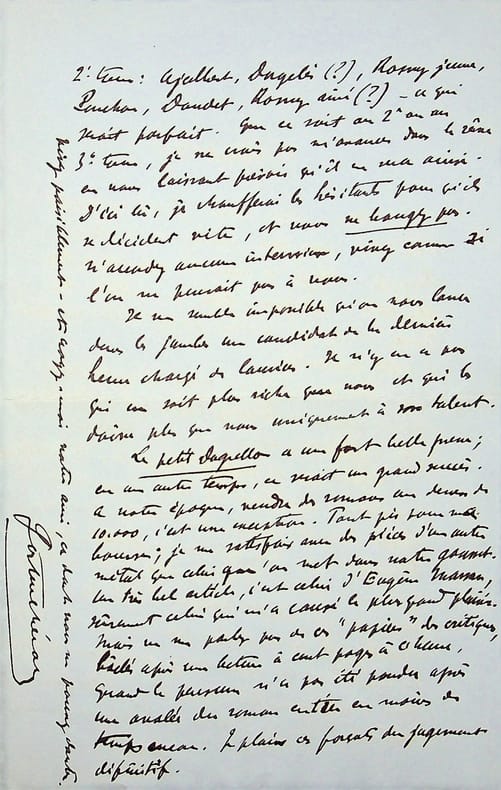 2e tour : Ajalbert, Dorgelès (?), Rosny jeune,
Ponchon, Daudet, Rosny aîné (?) – ce qui
serait parfait. Que ce soit au 2e ou au
3e tour, je ne crois pas m'avancer dans le
en vous laissant prévoir qu'il en sera ainsi.
D'ici là, je chaufferai les hésitants pour qu'ils
se décident vite, et vous ne bougez pas.
N'accordez aucune interview, vivez comme si
l'on ne pensait pas à vous.
Il me semble impossible qu'on nous lance
dans les jambes un candidat de la dernière
heure chargé de lauriers. Il n'y en a pas
qui en soit plus riche que vous et qui les
doive plus que vous uniquement à son talent.
Le petit Dagrello a une fort belle presse ;
en un autre temps, ce serait un grand succès.
A notre époque, vendre des romans au dessus de
10.000, c'est une exception. Tant pis pour ma
bourse ; je me satisfais avec des pièces d'un autre
métal que celui que l'on met dans notre gousset.
Un très bel article, c'est celui d'Eugène
celui qui m'a causé le plus grand plaisir.
Mais ne me parlez pas de ces "papiers" des critiques,
bâclés après une lecture à cent pages à l'heure,
quand le parcours n'a pas été
une avalée du roman entier en moins de
temps encore. Je plains ces forçats du jugement
définitif.
paisiblement – et croyez-moi votre ami, ce dont vous ne pouvez douter.